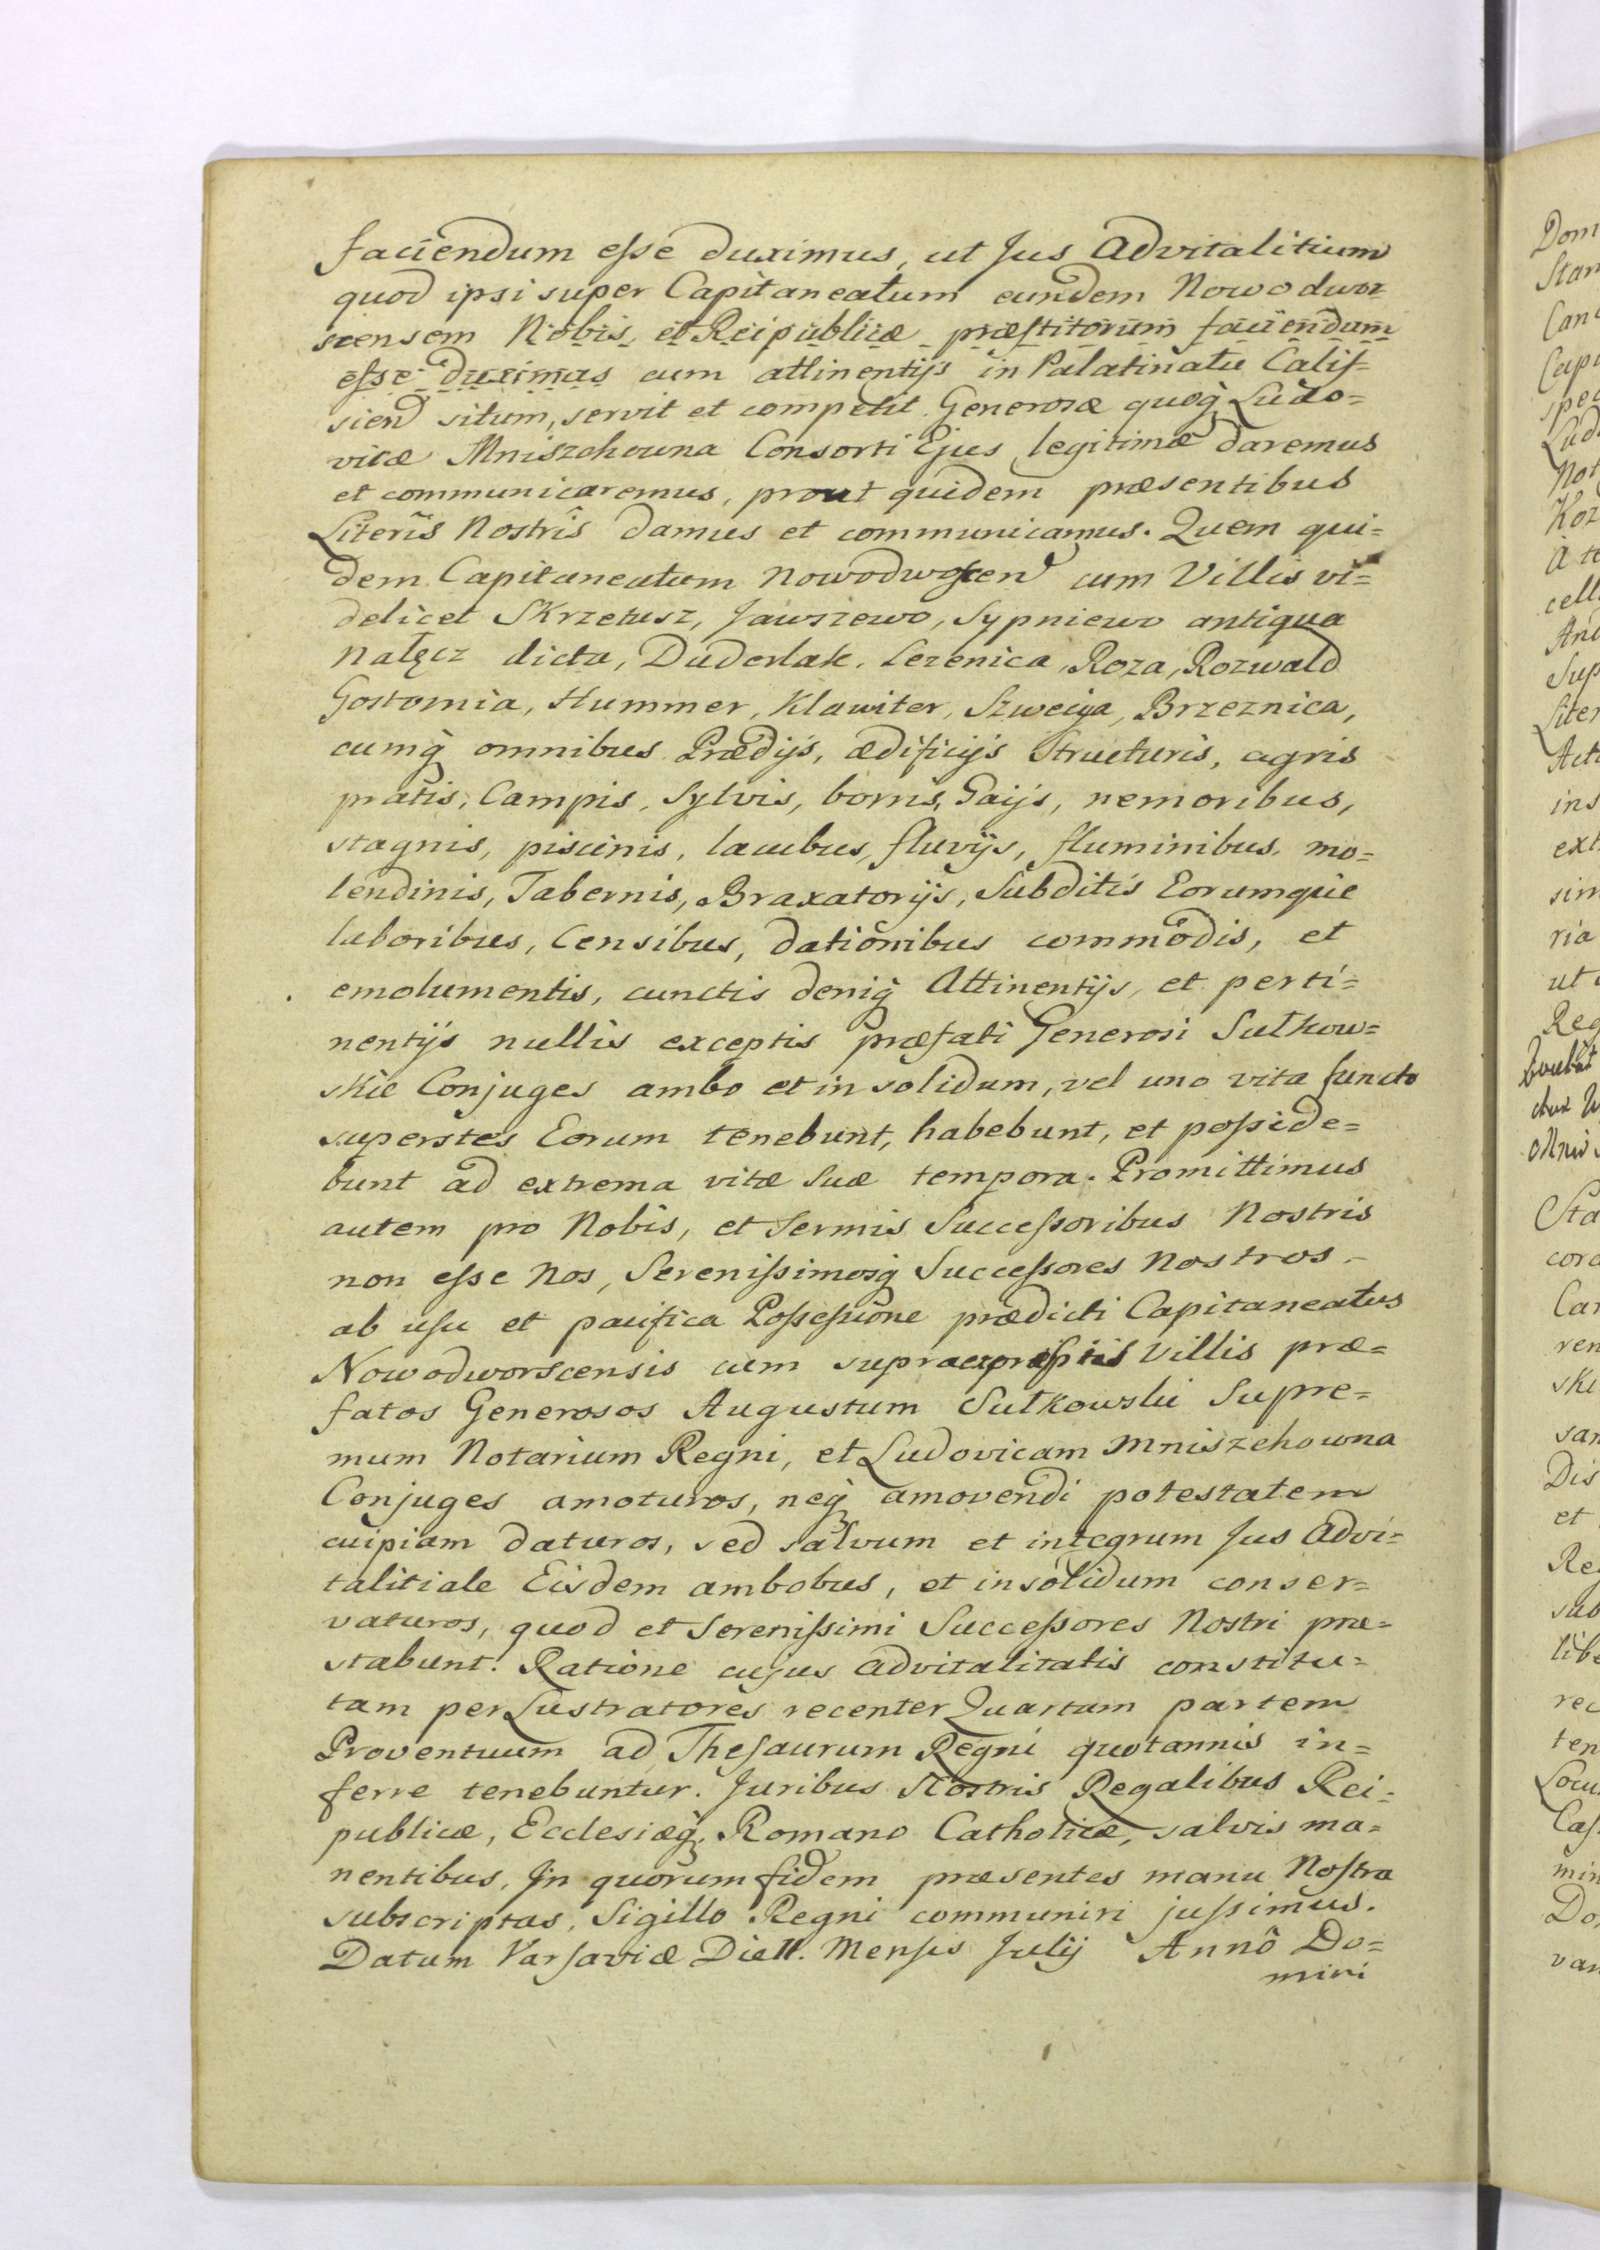 faciendum esse duximus, ut Jus Advitalitium
quod ipsi super Capitaneatum eundem Nowodwor
scensem Nobis, et Reipublicæ præstitorum faciendum
esse duximus cum attinentijs in Palatinatu Calis=
sien situm, servit et competit Generosæ quoq Ludo=
vicæ Mniszchowna Consorti Ejus legitimæ daremus
et communicaremus, prout quidem præsentibus
Literis Nostris damus et communicamus. Quem qui=
dem Capitaneatum Nowodworscen cum Villis vi=
delicet Skrzetusz, Jawszewo, Sypniewo antiqua
Nałęcz dicta, Duderlak, Lezenica, Roza, Rozwald
Gostomia, Hummer, Klawiter, Szwecija, Brzeznica,
cumq omnibus Prædijs, ædificijs Structuris, agris
pratis, Campis, Sylvis, borris, Gaijs, nemoribus,
stagnis, piscinis, lacubus, fluvijs, fluminibus, mo=
lendinis, Tabernis, Braxatorijs, Subditis Eorumque
laboribus, Censibus, dationibus commodis, et
emolumentis, cunctis deniq Attinentijs, et perti=
nentijs nullis exceptis præfati Generosi Sułkow=
skie Conjuges ambo et in solidum, vel uno vita functo
superstes Eorum tenebunt, habebunt, et posside=
bunt ad extrema vitæ suæ tempora. Promittimus
autem pro Nobis, et Sermis Successoribus Nostris
non esse Nos, Serenissimosq Successores Nostros
ab usu et pacifica Possessione prædicti Capitaneatus
Nowodworscensis cum supraexpressis Villis præ=
fatos Generosos Augustum Sułkowski Supre=
mum Notarium Regni, et Ludovicam Mniszchowna
Conjuges amoturos, neq amovendi potestatem
cuipiam daturos, sed salvum et integrum Jus Advi=
talitiale Eisdem ambobus, et insolidum conser=
vaturos, quod et Serenissimi Successores Nostri præ=
stabunt. Ratione cujus advitalitatis constitu=
tam per Lustratores recenter Quartam partem
Proventuum ad Thesaurum Regni quotannis in=
ferre tenebuntur. Juribus Nostris Regalibus Rei=
publicæ, Ecclesiæq, Romano Catholicæ, salvis ma=
nentibus, In quorum fidem præsentes manu Nostra
subscriptas, Sigillo Regni communiri jussimus.
Datum Varsaviæ Die 11. Mensis Julij Annô Do=
mini